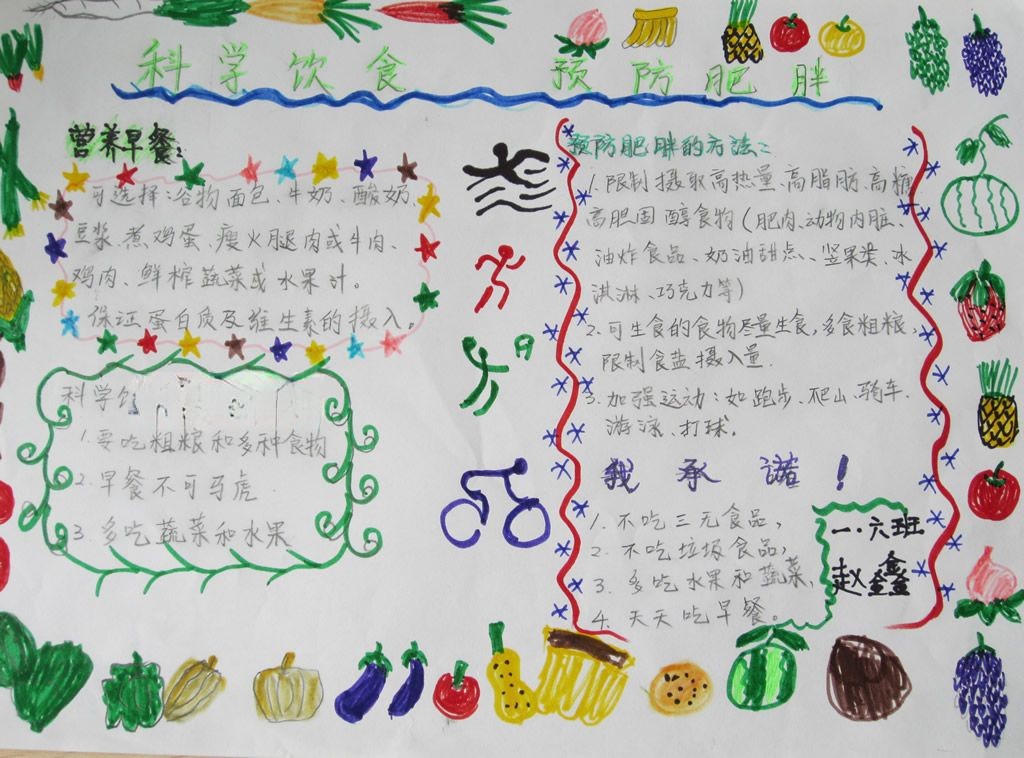 科学饮食 预防肥胖
营养早餐:
可选择:谷物面包、牛奶、酸奶、
豆浆、煮鸡蛋、瘦火腿肉或牛肉、
鸡肉、鲜榨蔬菜或水果汁。
保证蛋白质及维生素的摄入。
科学饮
1.要吃粗粮和多种食物
2.早餐不可马虎.
3.多吃蔬菜和水果
预防肥胖的方法:
1.限制摄取高热量、高脂肪、高糖
高胆固醇食物(肥肉、动物内脏、
油炸食品、奶油甜点、坚果类、冰
淇淋、巧克力等)
2.可生食的食物尽量生食,多食粗粮、
限制食盐摄入量.
3.加强运动:如跑步、爬山、骑车、
游泳、打球。
我承诺!
1.不吃三无食品,
2.不吃垃圾食品,
3.多吃水果和蔬菜,
4.天天吃早餐。
一·六班
赵鑫